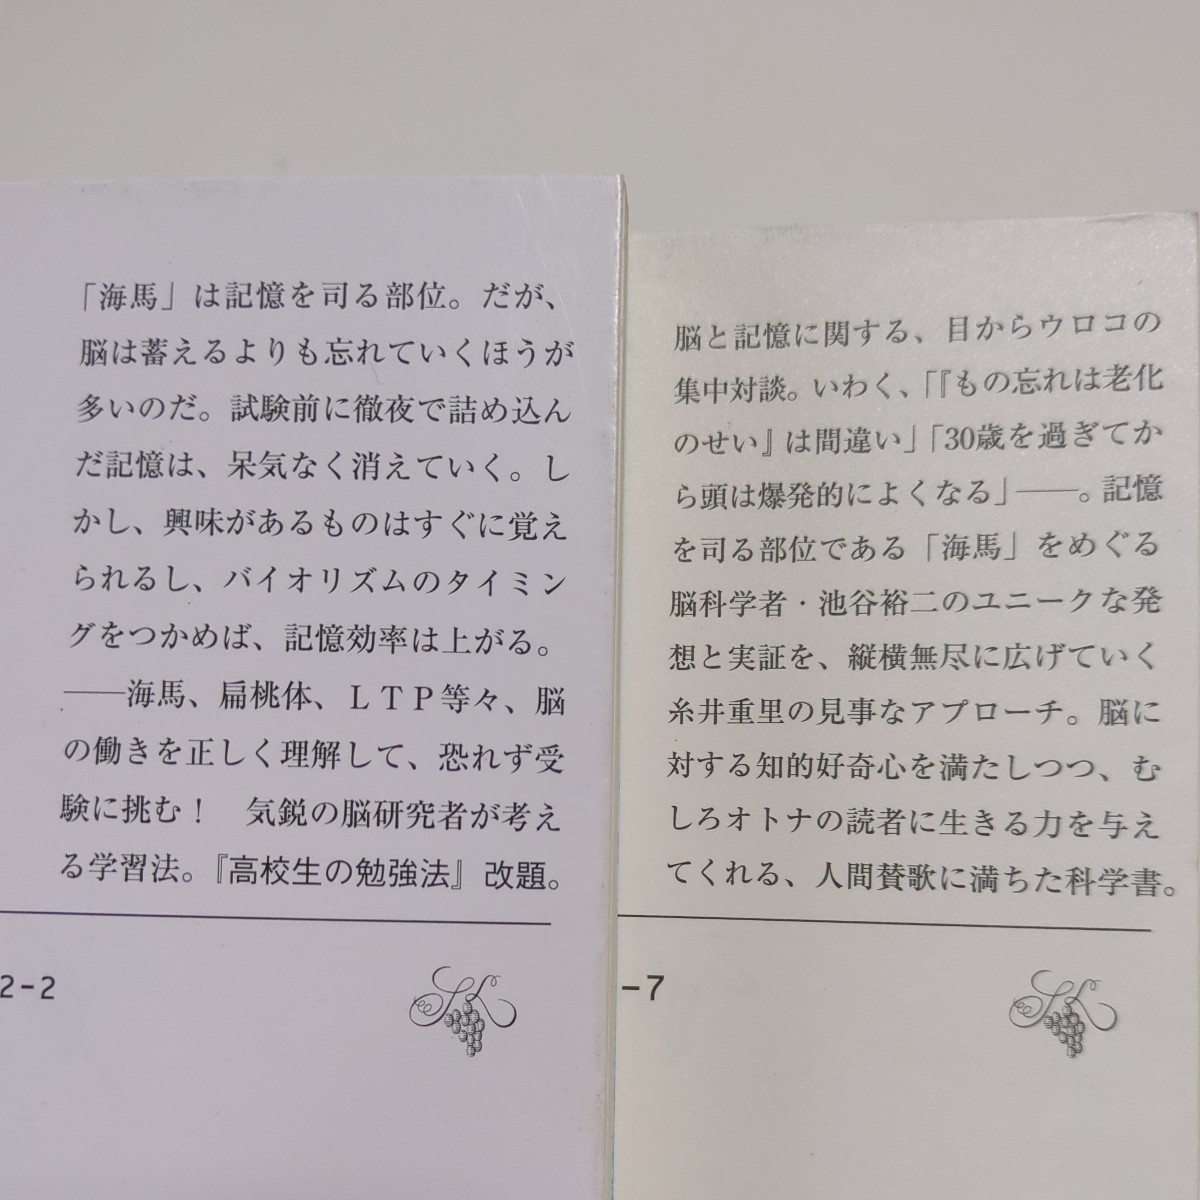 「海馬」は記憶を司る部位。だが、
脳は蓄えるよりも忘れていくほうが
多いのだ。試験前に徹夜で詰め込ん
だ記憶は、呆気なく消えていく。し
かし、興味があるものはすぐに覚え
られるし、バイオリズムのタイミン
グをつかめば、記憶効率は上がる。
――海馬、扁桃体、ＬＴＰ等々、脳
の働きを正しく理解して、恐れず受
験に挑む！　気鋭の脳研究者が考え
る学習法。『高校生の勉強法』改題。
2-2
脳と記憶に関する、目からウロコの
集中対談。いわく、「『もの忘れは老化
のせい』は間違い」「30歳を過ぎてか
ら頭は爆発的によくなる」――。記憶
を司る部位である「海馬」をめぐる
脳科学者・池谷裕二のユニークな発
想と実証を、縦横無尽に広げていく
糸井重里の見事なアプローチ。脳に
対する知的好奇心を満たしつつ、む
しろオトナの読者に生きる力を与え
てくれる、人間賛歌に満ちた科学書。
-7